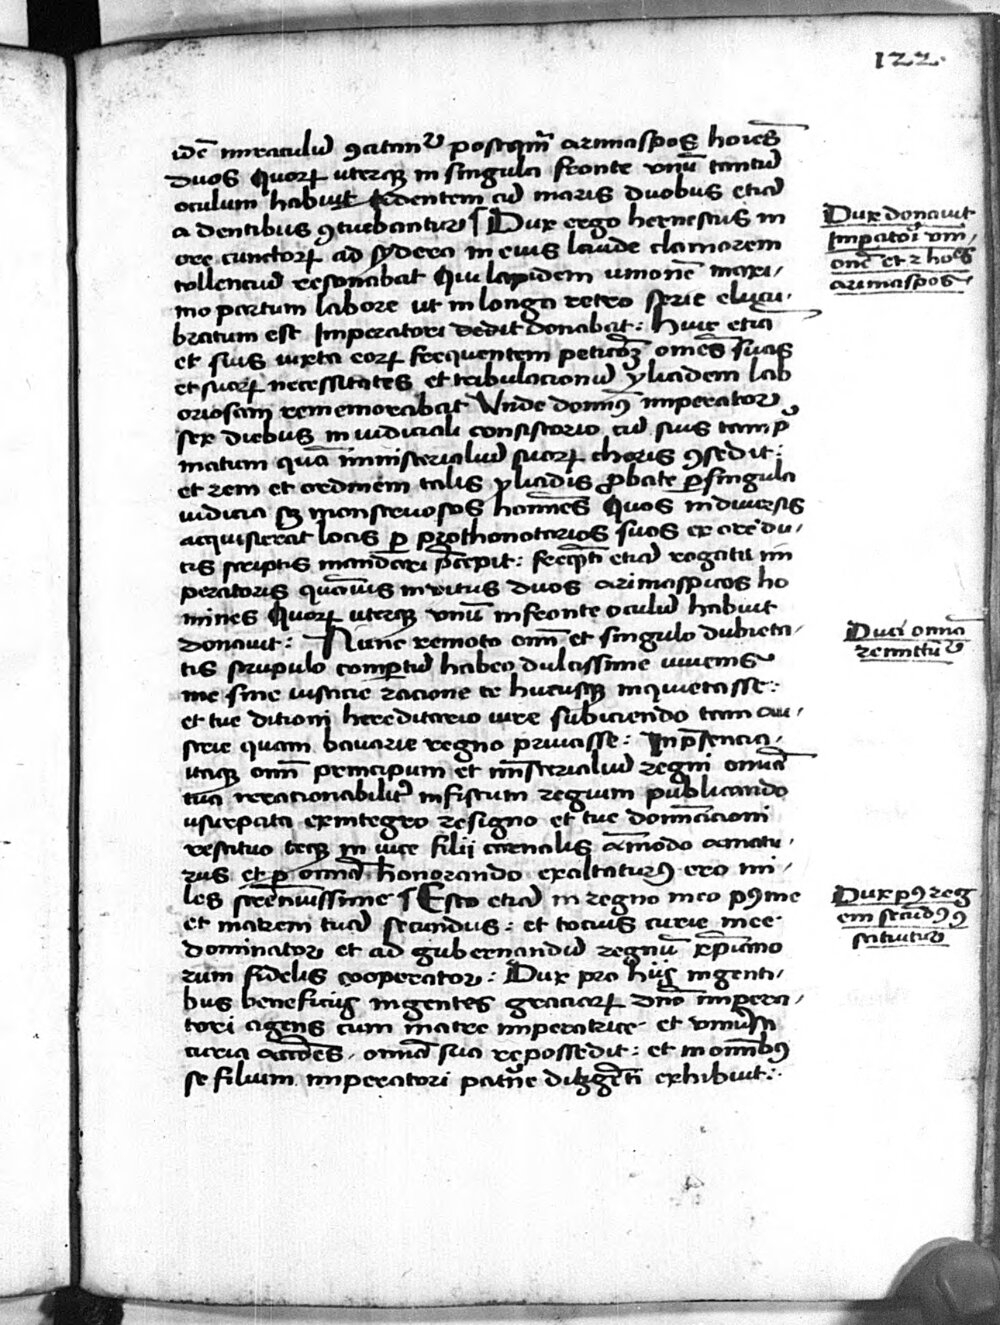 122.
idē miraculū ꝯcitant᷑ postqm̄ arimaspos hoīes
duos Quorꝝ uterqꝫ in singula fronte vnū tantū
oculum habuit Tendentem cū maris duobus etiā
a dentibus ꝯtuebantur ¶ Dux ergo hernestus in
ore cunctorꝝ ad sydera in eius laude clamorem
tollenciū resonabat Qui lapidem vnionē maxi,
mo partum labore ut in longa retro serie elucu,
bratum est Imperatori dedit donabat: Huic etiā
et suis iuxta eorꝝ frequentem peticōeꝫ omēs suas
et suorꝝ necessitates et tribulacionū yliadem lab
oriosam rememorabat Vnde domnꝰ imperator
sex diebus in iudiciali consistorio cū suis tam p̄
matum quā ministerialiū suorꝝ choris ꝯsedit:
et rem et ordinem talis yliadis ꝓbate ꝑ singula
iudicia sꝫ monstruosos homīes Quos in diuersis
acquisierat locis ꝑ prothonotarios suos ex ore du,
cis scriptis mandari p̄cepit: freqn̄ti etiā rogatu im
peratoris quāuis inuitus duos arimaspicos ho
mines Quorꝝ uterqꝫ vnū in fronte oculū habuit
donauit: Nunc remoto om̄i et singulo dubieta,
tis scrupulo compertū habeo dulcissime iuuenis
me sine iusticie racione te hucusqꝫ inquietasse:
et tue ditioni hereditario iure subiciendo tam au,
strie quam bauarie regno priuasse: In p̄sencia,
itaqꝫ om̄i principum et mīsterialiū regni omīa
tua irracionabilit᷑ in fiscum regium publicando
usurpata ex integro resigno et tue domīacioni
restituo teqꝫ in uice filii carnalis āmodo amatu,
rus et ꝑ omīa honorando exaltaturꝰ ero mi,
les strēnuissime ¶ Esto etiā in regno meo pꝰ me
et matrem tuā secundus: et tocius curie mee
dominator et ad gubernandū regnū xp̄iano
rum fidelis cooperator: Dux pro hijs ingenti,
bus beneficijs ingentes graciarꝝ dn̄o impera,
tori agens cum matre imperatrice et vniūsa
curia accōes, omīa sua repossedit: et in om̄ibꝰ
se filium imperatori patn̄e diligēti exhibuit:
Dux donauit
Impatōi vni,
onē et 2 hoīes
arimaspos
Duci omīa
remittūt᷑
Dux pꝰ reg
em secūdꝰ ꝯ
stituitur